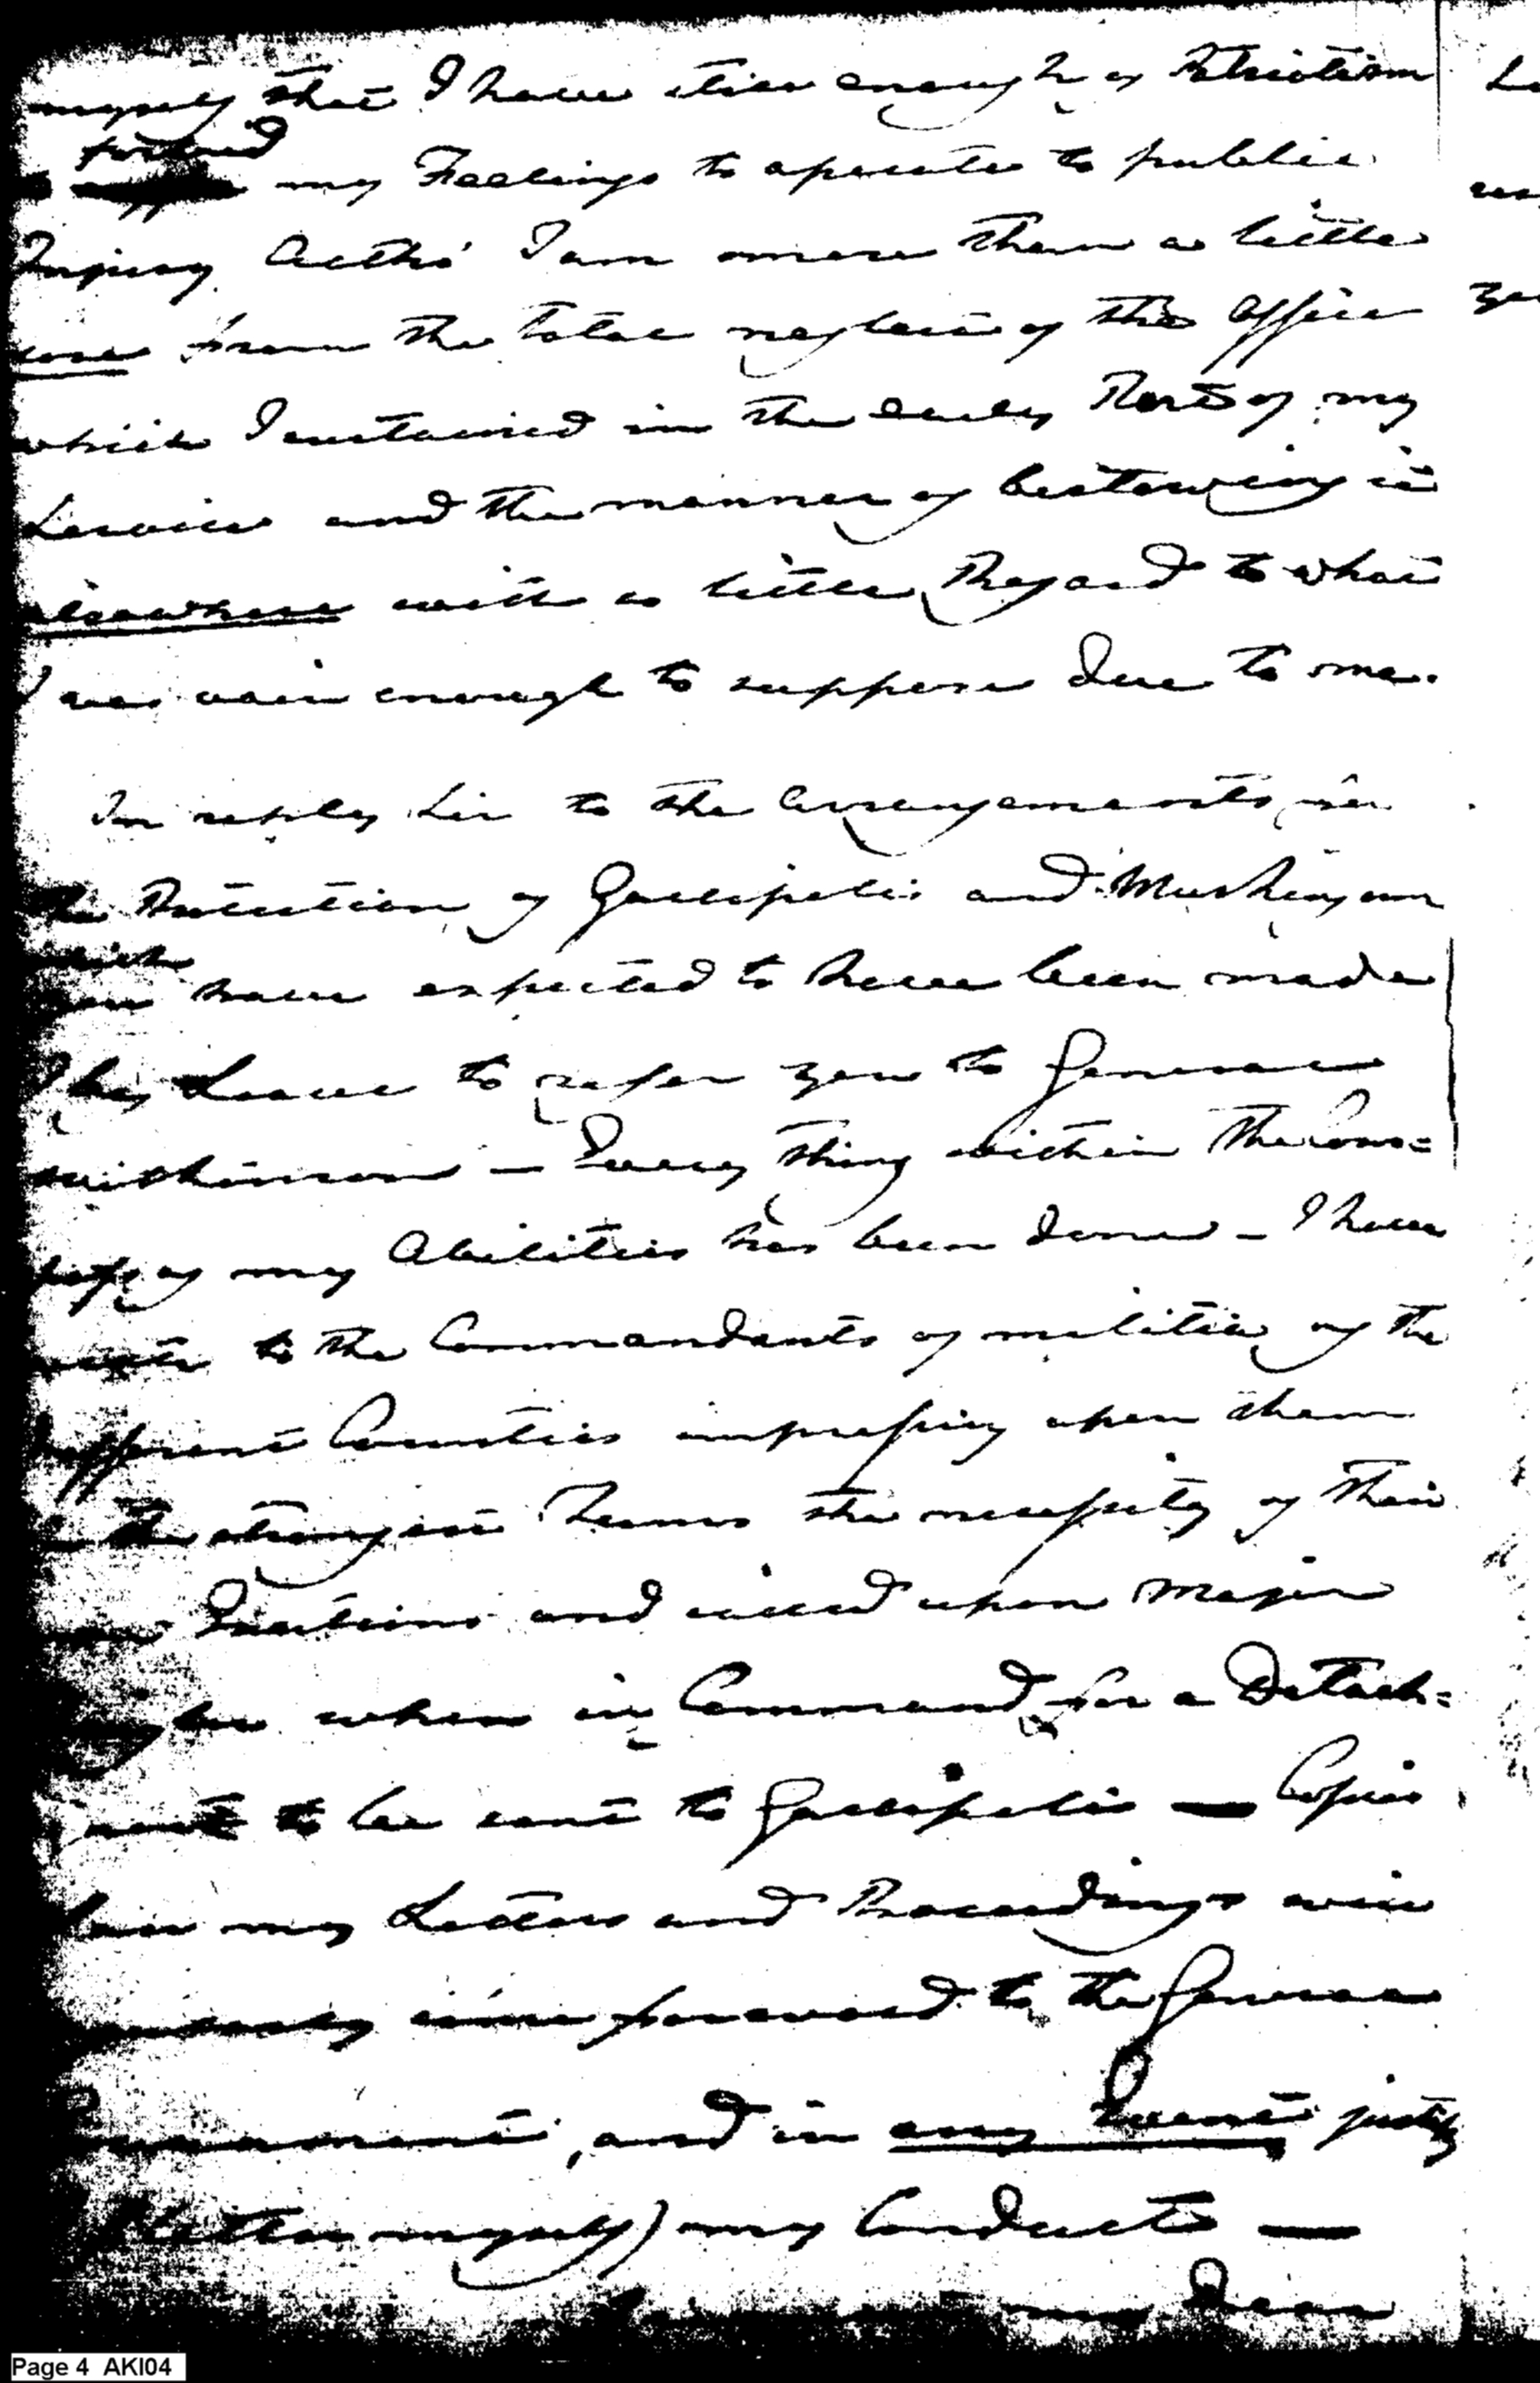 myself that I have still enough of Patriotism
to forbid my Feelings to operate to public
Injury. Altho' I am more than a little
sore from the total neglect of the Office
which I sustained in the early Part of my
Service and the manner of bestowing it
elsewhere with so little Regard to what
I was vain enough to suppose due to me.
In reply Sir to the arrangements for
the Protection of Gallipolis and Muskingum
which
you have expected to have been made
I beg Leave to refer you to General
Wilkinson — Every thing within the Com=
pass of my Abilities has been done — I have
wrote to the Commandants of militia of the
different Counties impressing upon them
in the strongest Terms the necessity of their
own Exertions and called upon Major
when in Command for a Detach=
ment to be sent to Gallipolis — Copies
of my Letters and Proceedings will
come forward to the General
Government, and in any Event justify
(I flatter myself) my Conduct —
my Dear
Page 4 AKI04